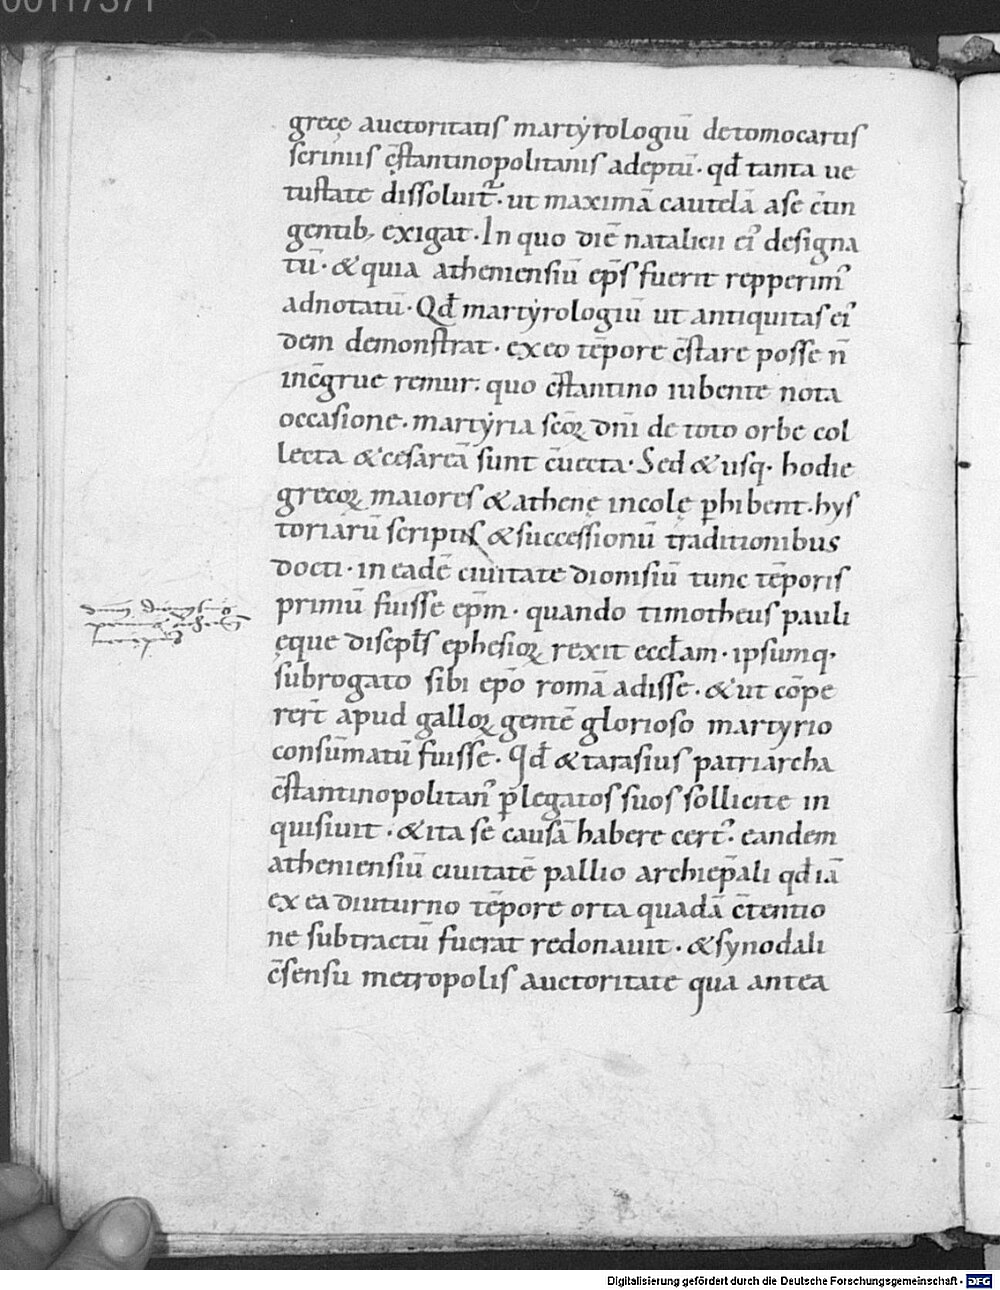 00117371
grecę auctoritatis martẏrologiū de tomocartis
scriniis c̄stantinopolitanis adeptū · qđ tanta ue
tustate dissoluit̃ · ut maximā cautelā a se c̄tin
gentib; exigat · In quo diē natalicii ei᾽ designa
tū · & quia atheniensiū ep̄s fuerit repperim᾽
adnotatū · Qđ martẏrologiū ut antiquitas ei᾽
dem demonstrat · ex eo tēpore c̄stare posse n̄
incc̄grue remur : quo c̄stantino iubente nota
occasione · martẏria sc̄oꝝ dn̄i de toto orbe col
lecta & cesareā sunt c̄uecta · Sed & usq · hodie
grecoꝝ maiores & athenę incolę p̱hibent · hys
toriarū scriptis & successionū traditionibus
docti · in eadē ciuitate dionisiū tunc tēporis
primū fuisse ep̄m · quando timotheus pauli
ęque discipl̄s ephesioꝝ rexit eccl̄am · ipsumq ·
subrogato sibi ep̄o romā adisse · & ut cōpe
rert̄ apud galloꝝ gentē glorioso martyrio
consūmatū fuisse · Qđ & tarasius patriarcha
c̄stantinopolitan᾽ p̱ legatos suos sollicite in
quisiuit · & ita se causā habere cert᾽ · eandem
atheniensiū ciuitatē pallio archiep̄ali qđ iā
ex ea diuturno tēpore orta quadā c̄tentio
ne subtractū fuerat redonauit · & synodali
c̄sensu metropolis auctoritate qua antea
Digitalisierung gefördert durch die Deutsche Forschungsgemeinschaft - DFG